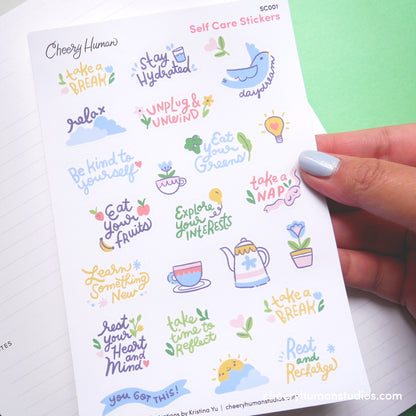 SC001
Cheery Human
Self Care Stickers
take a
BREAK
Stay
Hydrated
daydream
relax
UNPLUG &
UNWIND
Be kind to
yourself
Eat
your
Greens
take a
NAP
Eat
your
fruits
Explore
your
INTERESTS
Learn
Something
New
take a
BREAK
rest
your
Heart
and
Mind
take
time to
Reflect
Rest
and
Recharge
YOU GOT THIS!
by Kristina Yu | cheeryhumanstudios
cheeryhumanstudios.com